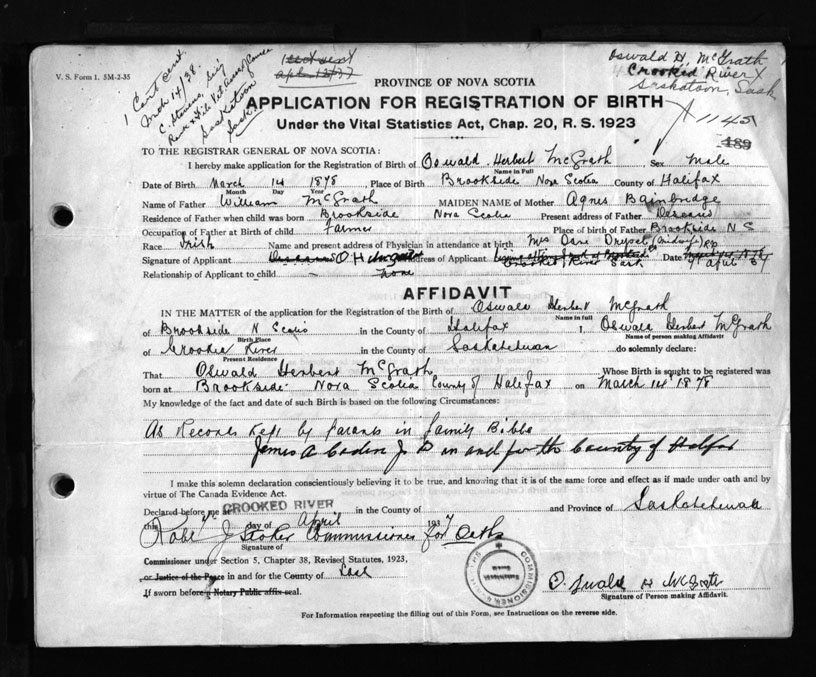 V. S. Form 1. 5M-2-35
1 Cert sent.
Mch 14/38.
Saskatoon
Sask.
Oswald H. McGrath
Crooked River
Saskatoon, Sask
1145
189
PROVINCE OF NOVA SCOTIA
APPLICATION FOR REGISTRATION OF BIRTH
Under the Vital Statistics Act, Chap. 20, R. S. 1923
TO THE REGISTRAR GENERAL OF NOVA SCOTIA:
I hereby make application for the Registration of Birth of Oswald Herbert McGrath Sex Male
Name in Full
Date of Birth March 14 1878, Place of Birth Brookside Nova Scotia County of Halifax
Month Day Year
Name of Father William McGrath MAIDEN NAME of Mother Agnes Bainbridge
Residence of Father when child was born Brookside Nova Scotia Present address of Father Deceased
Occupation of Father at Birth of child farmer Place of birth of Father Brookside N S
Race Irish Name and present address of Physician in attendance at birth Mrs Dane (Midwife)
Signature of Applicant O H McGrath Address of Applicant Crooked River Sask Date 9 April 37
Relationship of Applicant to child none
AFFIDAVIT
IN THE MATTER of the application for the Registration of the Birth of Oswald Herbert McGrath
Name in full
of Brookside N Scotia in the County of Halifax I, Oswald Herbert McGrath
Birth Place Name of person making Affidavit
of Crooked River in the County of Saskatchewan do solemnly declare:
Present Residence
That Oswald Herbert McGrath Whose Birth is sought to be registered was
born at Brookside Nova Scotia County of Halifax on March 14 1878
My knowledge of the fact and date of such Birth is based on the following Circumstances:
As Records kept by parents in family Bible
James A in and for the County of Halifax
I make this solemn declaration conscientiously believing it to be true, and knowing that it is of the same force and effect as if made under oath and by
virtue of The Canada Evidence Act.
Declared before me at CROOKED RIVER in the County of and Province of Saskatchewan
this day of April 1937
Robt J Stoker Commissioner for Oaths
Signature of
Commissioner under Section 5, Chapter 38, Revised Statutes, 1923,
or Justice of the Peace in and for the County of Sask
If sworn before a Notary Public affix seal.
Oswald H McGrath
Signature of Person making Affidavit.
For Information respecting the filling out of this Form, see Instructions on the reverse side.